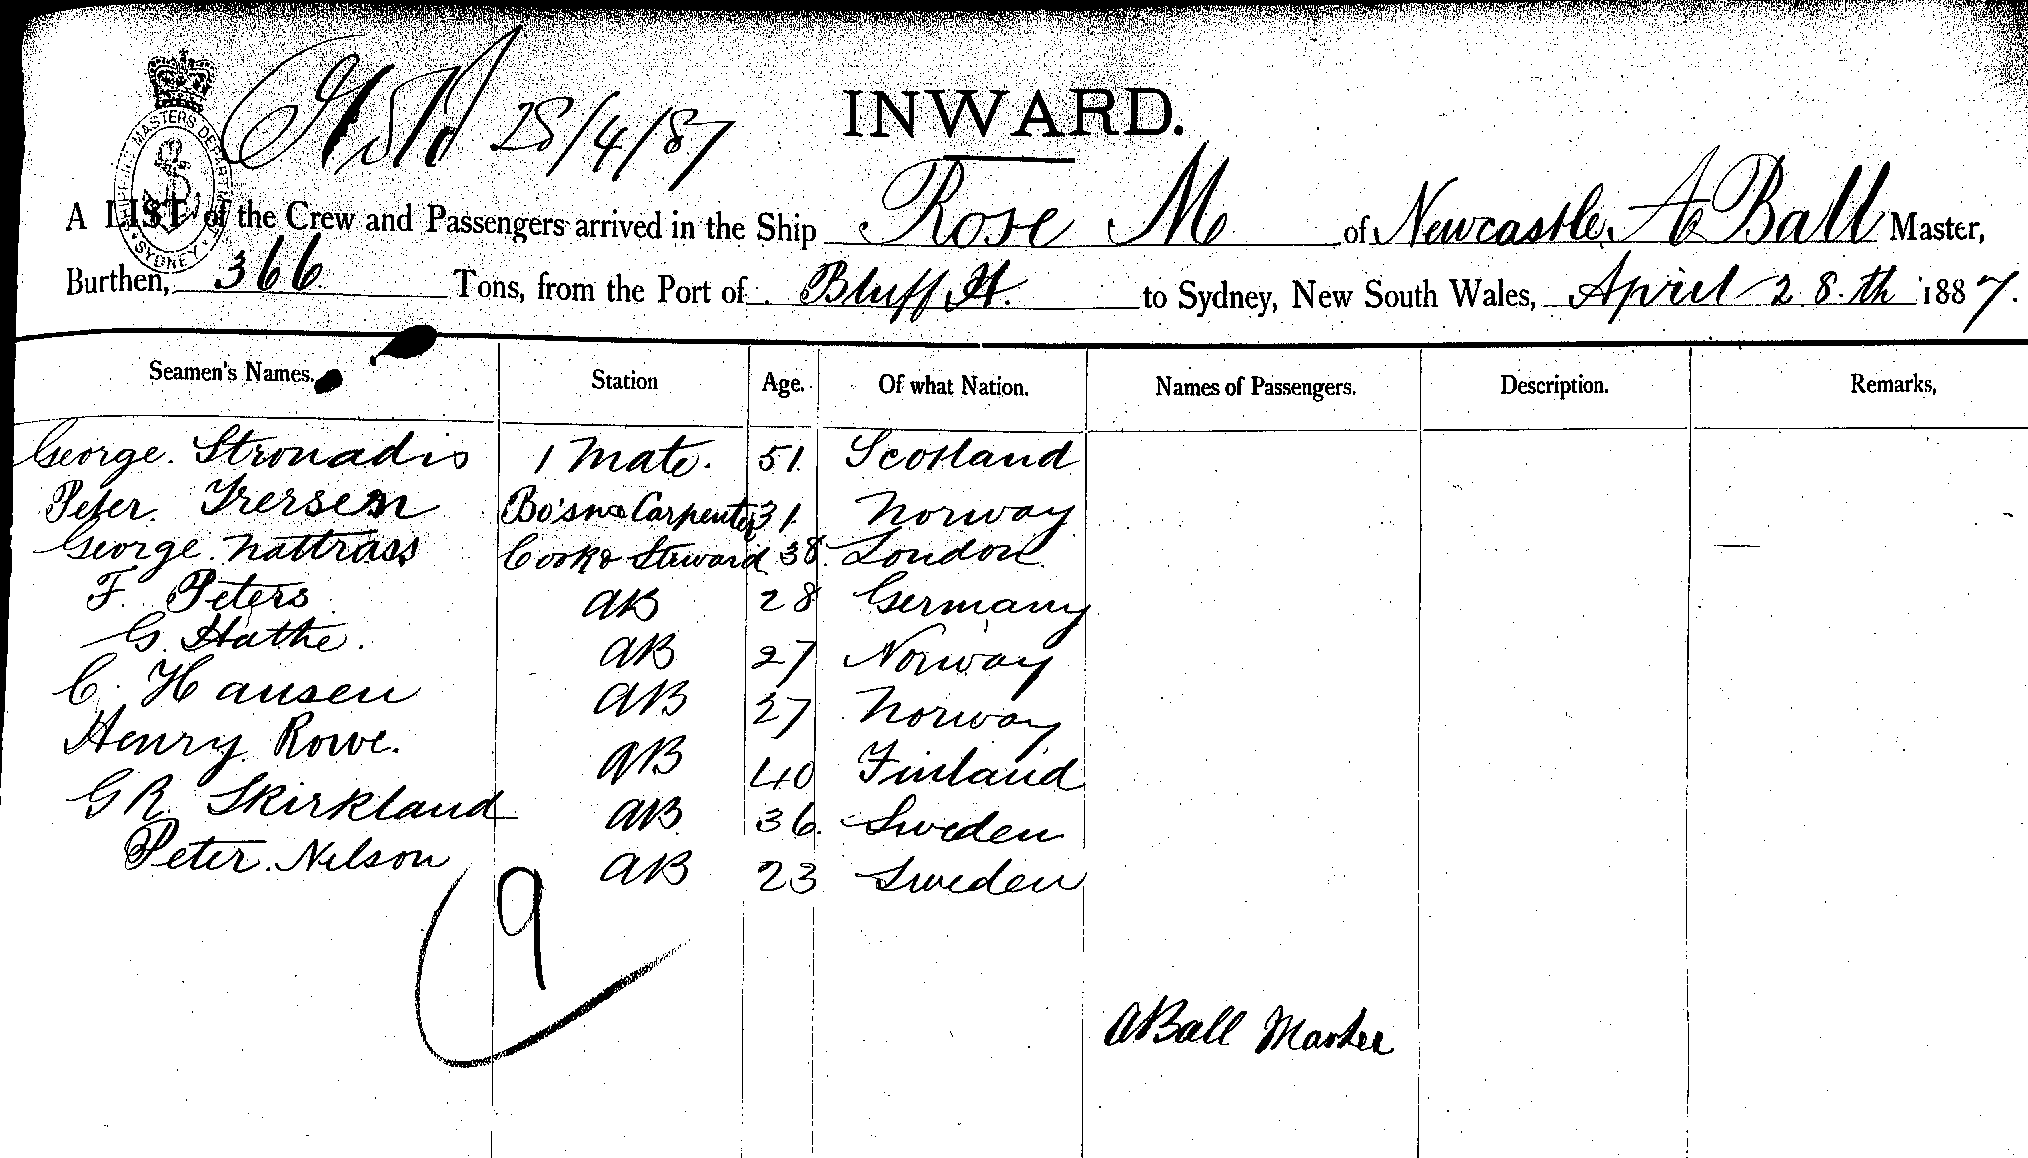 28/4/87
INWARD.
SHIPPING MASTERS DEPARTMENT SYDNEY
A LIST of the Crew and Passengers arrived in the Ship Rose M of Newcastle, A Ball Master,
Burthen, 366 Tons, from the Port of Bluff to Sydney, New South Wales, April 28th 1887.
Seamen's Names. Station Age. Of what Nation. Names of Passengers. Description. Remarks,
George Stronadis 1 Mate. 51 Scotland
Peter Irersen Bo'sn & Carpenter 31 Norway
George Nattrass Cook & Steward 38 London
F. Peters AB 28 Germany
G. Hathe. AB 27 Norway
C. Hansen AB 27 Norway
Henry Rowe. AB 40 Finland
G R Skirkland AB 36 Sweden
Peter. Nilson AB 23 Sweden
9
A Ball Master